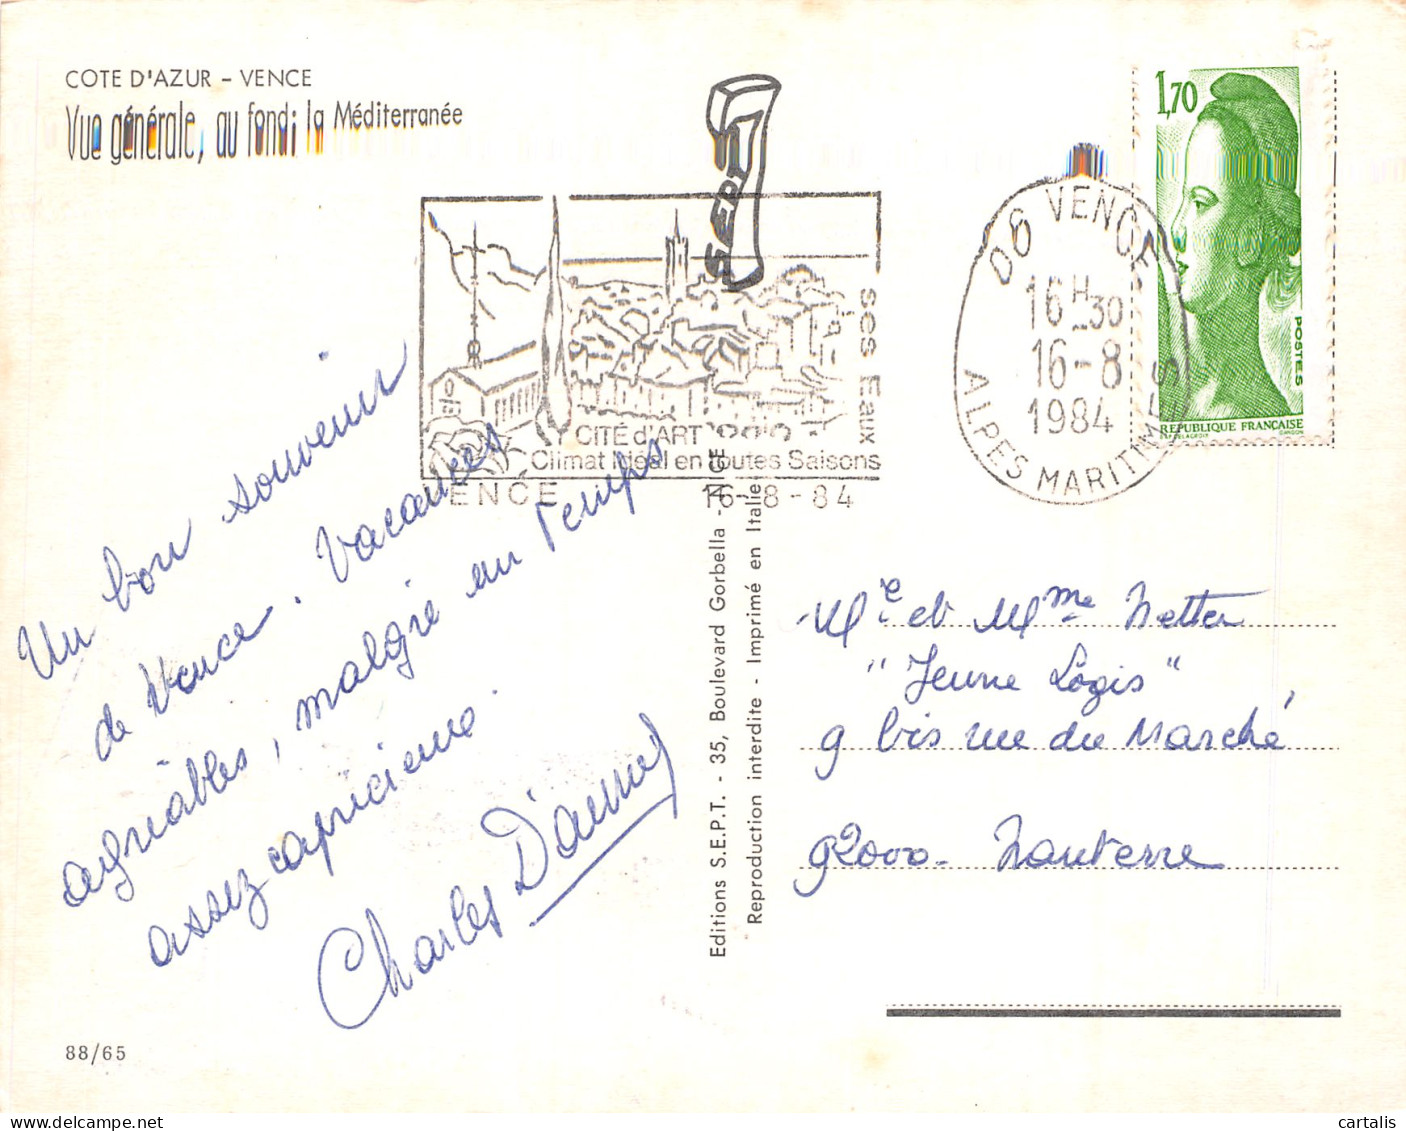 COTE D'AZUR - VENCE
Vue générale, au fond: la Méditerranée
SEPT
1,70
POSTES
REPUBLIQUE FRANÇAISE
D'AP DELACROIX GANDON
06 VENCE
16H30
16-8
1984
ALPES MARITIMES
Ses Eaux
CITÉ d'ART
Climat Idéal en toutes Saisons
VENCE 16-8-84
Un bon souvenir
de Vence. Vacances
agréables, malgré un temps
assez capricieux.
Charles
Editions S.E.P.T. - 35, Boulevard Gorbella - NICE
Reproduction interdite - Imprimé en Italie
Mr et Mme Netter
"Jeune Logis"
9 bis rue du Marché
92000 - Nanterre
88/65
cartalis